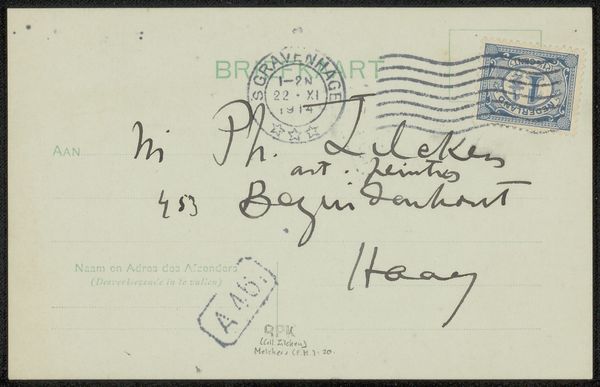 BRIEFKAART
'SGRAVENHAGE
1-2N
22·XI
1914
NEDERLAND
1½
AAN
M Ph. Zilcken
art. peintre
453 Bezuidenhout
Haag
Naam en Adres des Afzenders
(Desverkiezende in te vullen)
A46.
RPK
(Coll. Zilcken)
Melchers (F.M.)-20.